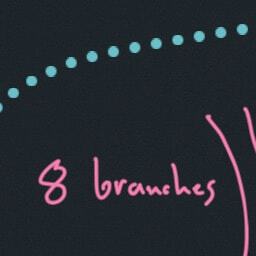 8 branches